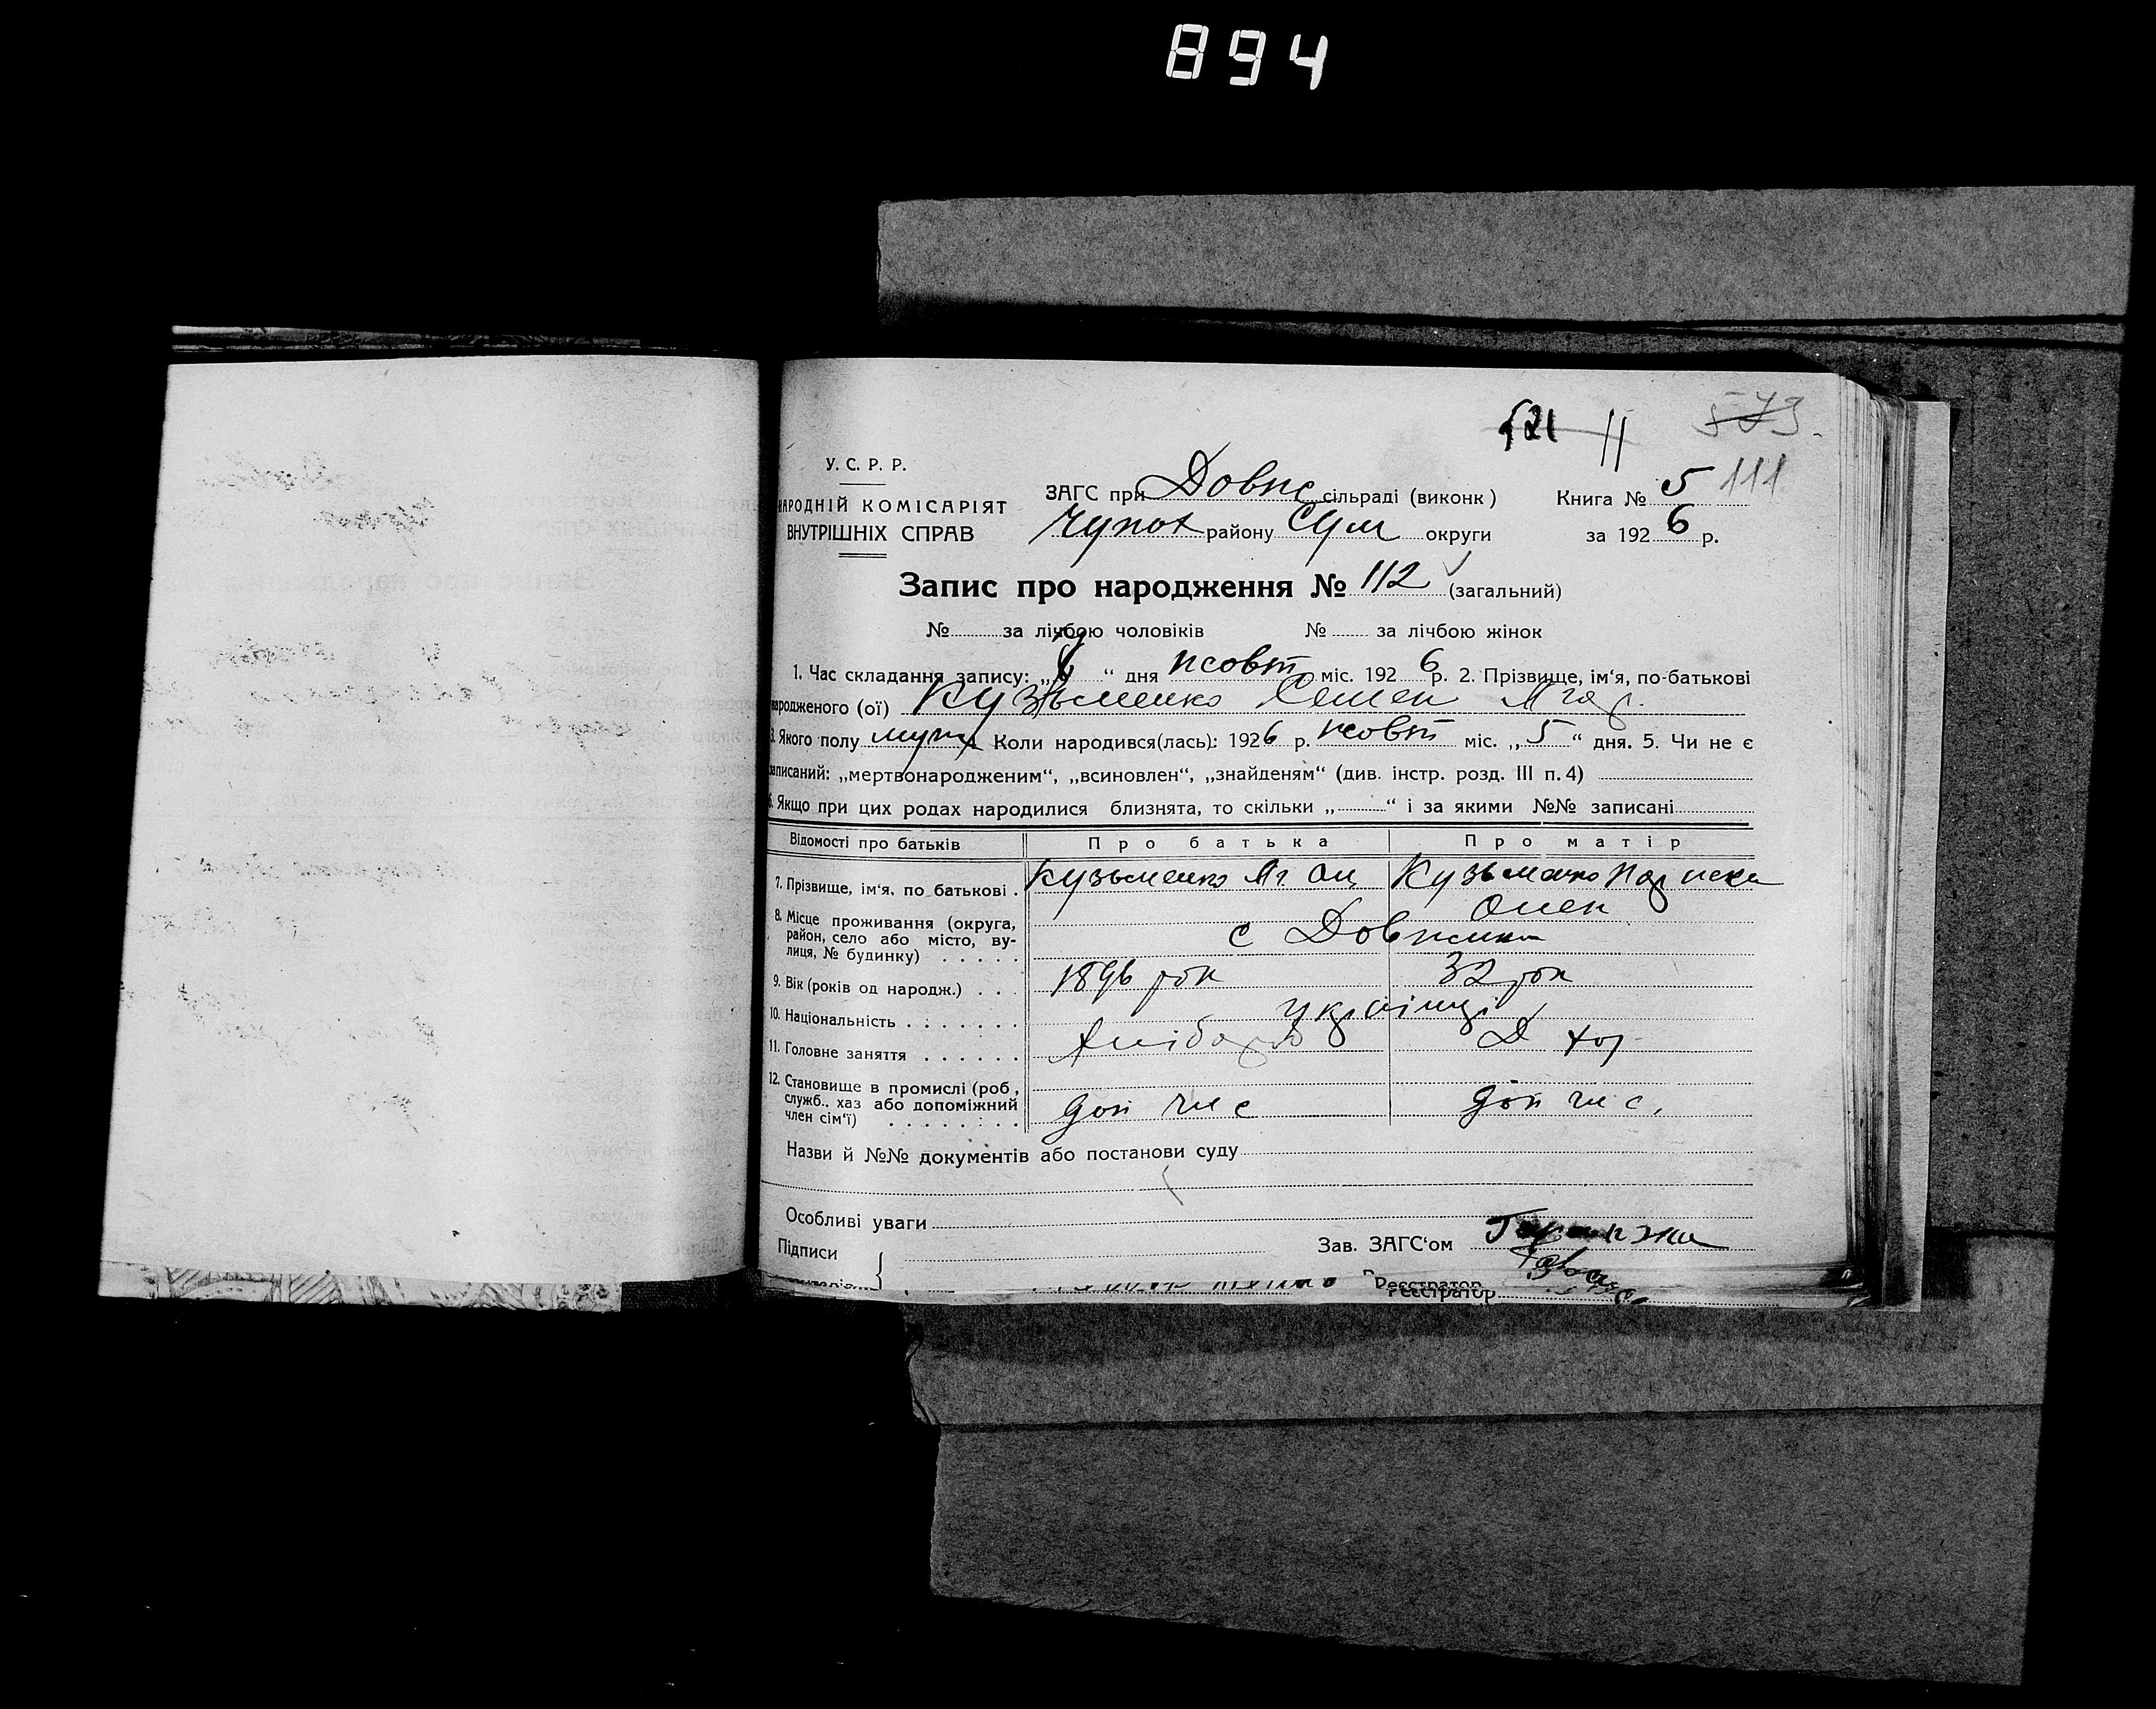 894
521 11 573
У. С. Р. Р.
НАРОДНІЙ КОМІСАРІЯТ
ВНУТРІШНІХ СПРАВ
ЗАГС при Довж сільраді (виконк) Книга № 5 111
Чупах району Сум округи за 1926 р.
Запис про народження № 112 (загальний)
№ за лічбою чоловіків № за лічбою жінок
1. Час складання запису: „ “ дня жовт міс. 1926 р. 2. Прізвище, ім‘я, по-батькові
народженого (ої) Кузьменко Семен
3. Якого полу муж Коли народився(лась): 1926 р. жовт міс. „5“ дня. 5. Чи не є
записаний: „мертвонародженим“, „всиновлен“, „знайденям“ (див. інстр. розд. III п. 4)
6. Якщо при цих родах народилися близнята, то скільки „ “ і за якими №№ записані
Відомості про батьків Про батька Про матір
7. Прізвище, ім‘я, по батькові . Кузьменко Кузьменко
Омек
8. Місце проживання (округа,
район, село або місто, ву-
лиця, № будинку) . . . . . с Довжик
9. Вік (років од народж.) . . . 1896 рок 32 рок
10. Національність . . . . . . . українці
11. Головне заняття . . . . . . Хлібороб Д хоз
12. Становище в промислі (роб,
служб., хаз або допоміжний
член сім‘ї) . . . . . . . . доп чл с доп чл с.
Назви й №№ документів або постанови суду
Особливі уваги
Підписи
Зав. ЗАГС‘ом
Реєстратор
Реєстратор